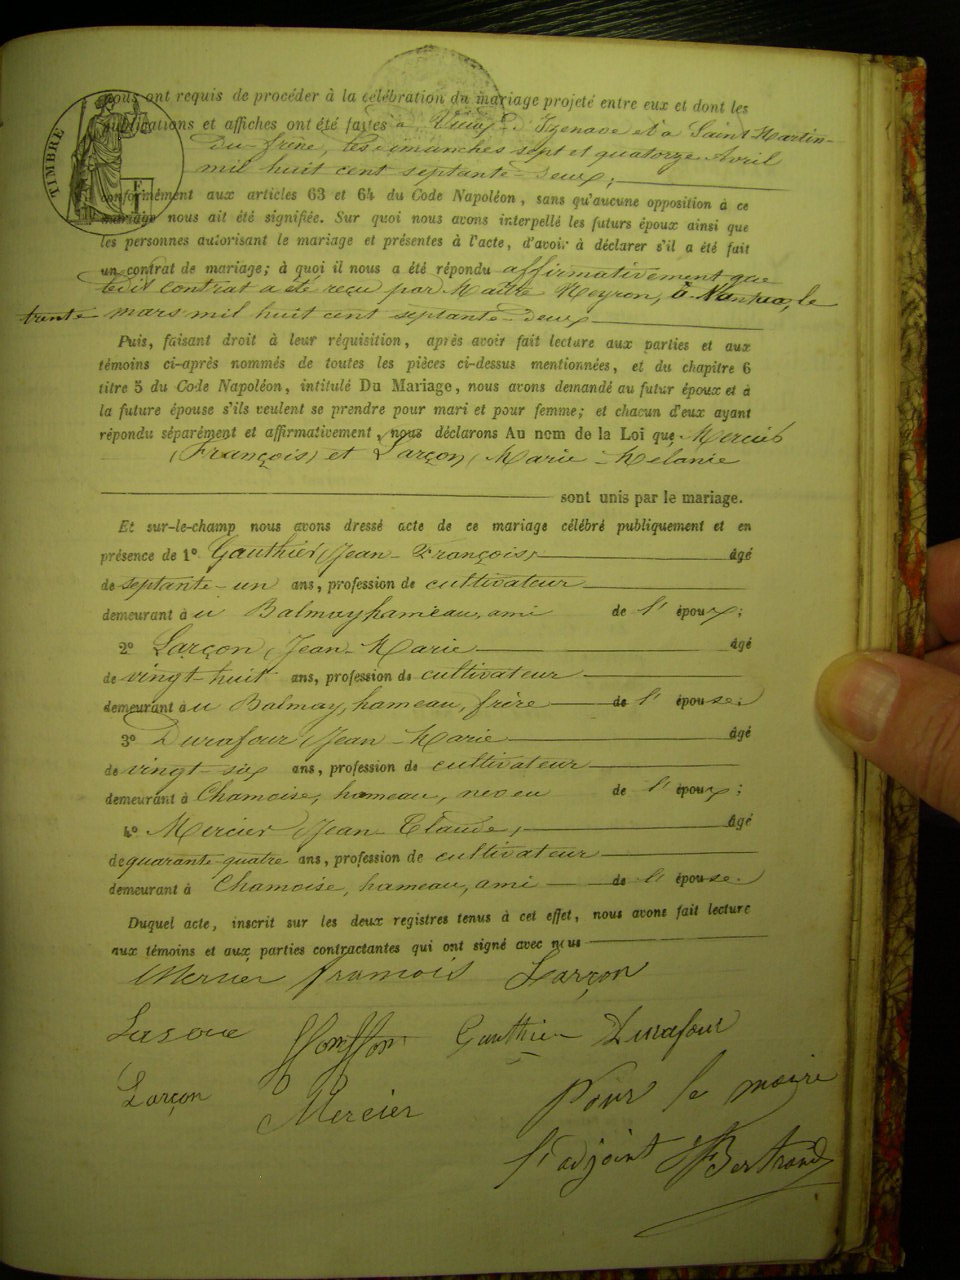 TIMBRE
nous ont requis de procéder à la célébration du mariage projeté entre eux et dont les
publications et affiches ont été faites à Vieux-d'Izenave et à Saint Martin-
du-frêne, les dimanches sept et quatorze Avril
mil huit cent septante-deux;
conformément aux articles 63 et 64 du Code Napoléon, sans qu'aucune opposition à ce
mariage nous ait été signifiée. Sur quoi nous avons interpellé les futurs époux ainsi que
les personnes autorisant le mariage et présentes à l'acte, d'avoir à déclarer s'il a été fait
un contrat de mariage; à quoi il nous a été répondu affirmativement que
ledit contrat a été reçu par Maître Neyron, à Nantua, le
trente mars mil huit cent septante-deux
Puis, faisant droit à leur réquisition, après avoir fait lecture aux parties et aux
témoins ci-après nommés de toutes les pièces ci-dessus mentionnées, et du chapitre 6
titre 5 du Code Napoléon, intitulé Du Mariage, nous avons demandé au futur époux et à
la future épouse s'ils veulent se prendre pour mari et pour femme; et chacun d'eux ayant
répondu séparément et affirmativement, nous déclarons Au nom de la Loi que Mercier
(François) et Larçon, Marie-Mélanie
sont unis par le mariage.
Et sur-le-champ nous avons dressé acte de ce mariage célébré publiquement et en
présence de 1° Gauthier (Jean-François) âgé
de septante-un ans, profession de cultivateur
demeurant à u Balmay hameau, ami de l'époux;
2° Larçon (Jean-Marie âgé
de vingt-huit ans, profession de cultivateur
demeurant à u Balmay, hameau, frère de l'épouse;
3° Durafour (Jean-Marie âgé
de vingt-six ans, profession de cultivateur
demeurant à Chamoise, hameau, neveu de l'époux;
4° Mercier (Jean-Claude, âgé
de quarante-quatre ans, profession de cultivateur
demeurant à Chamoise, hameau, ami de l'épouse.
Duquel acte, inscrit sur les deux registres tenus à cet effet, nous avons fait lecture
aux témoins et aux parties contractantes qui ont signé avec nous
Mercier françois Larçon
Gauthier Durafour
Larçon Mercier Pour le maire
l'adjoint Bertrand